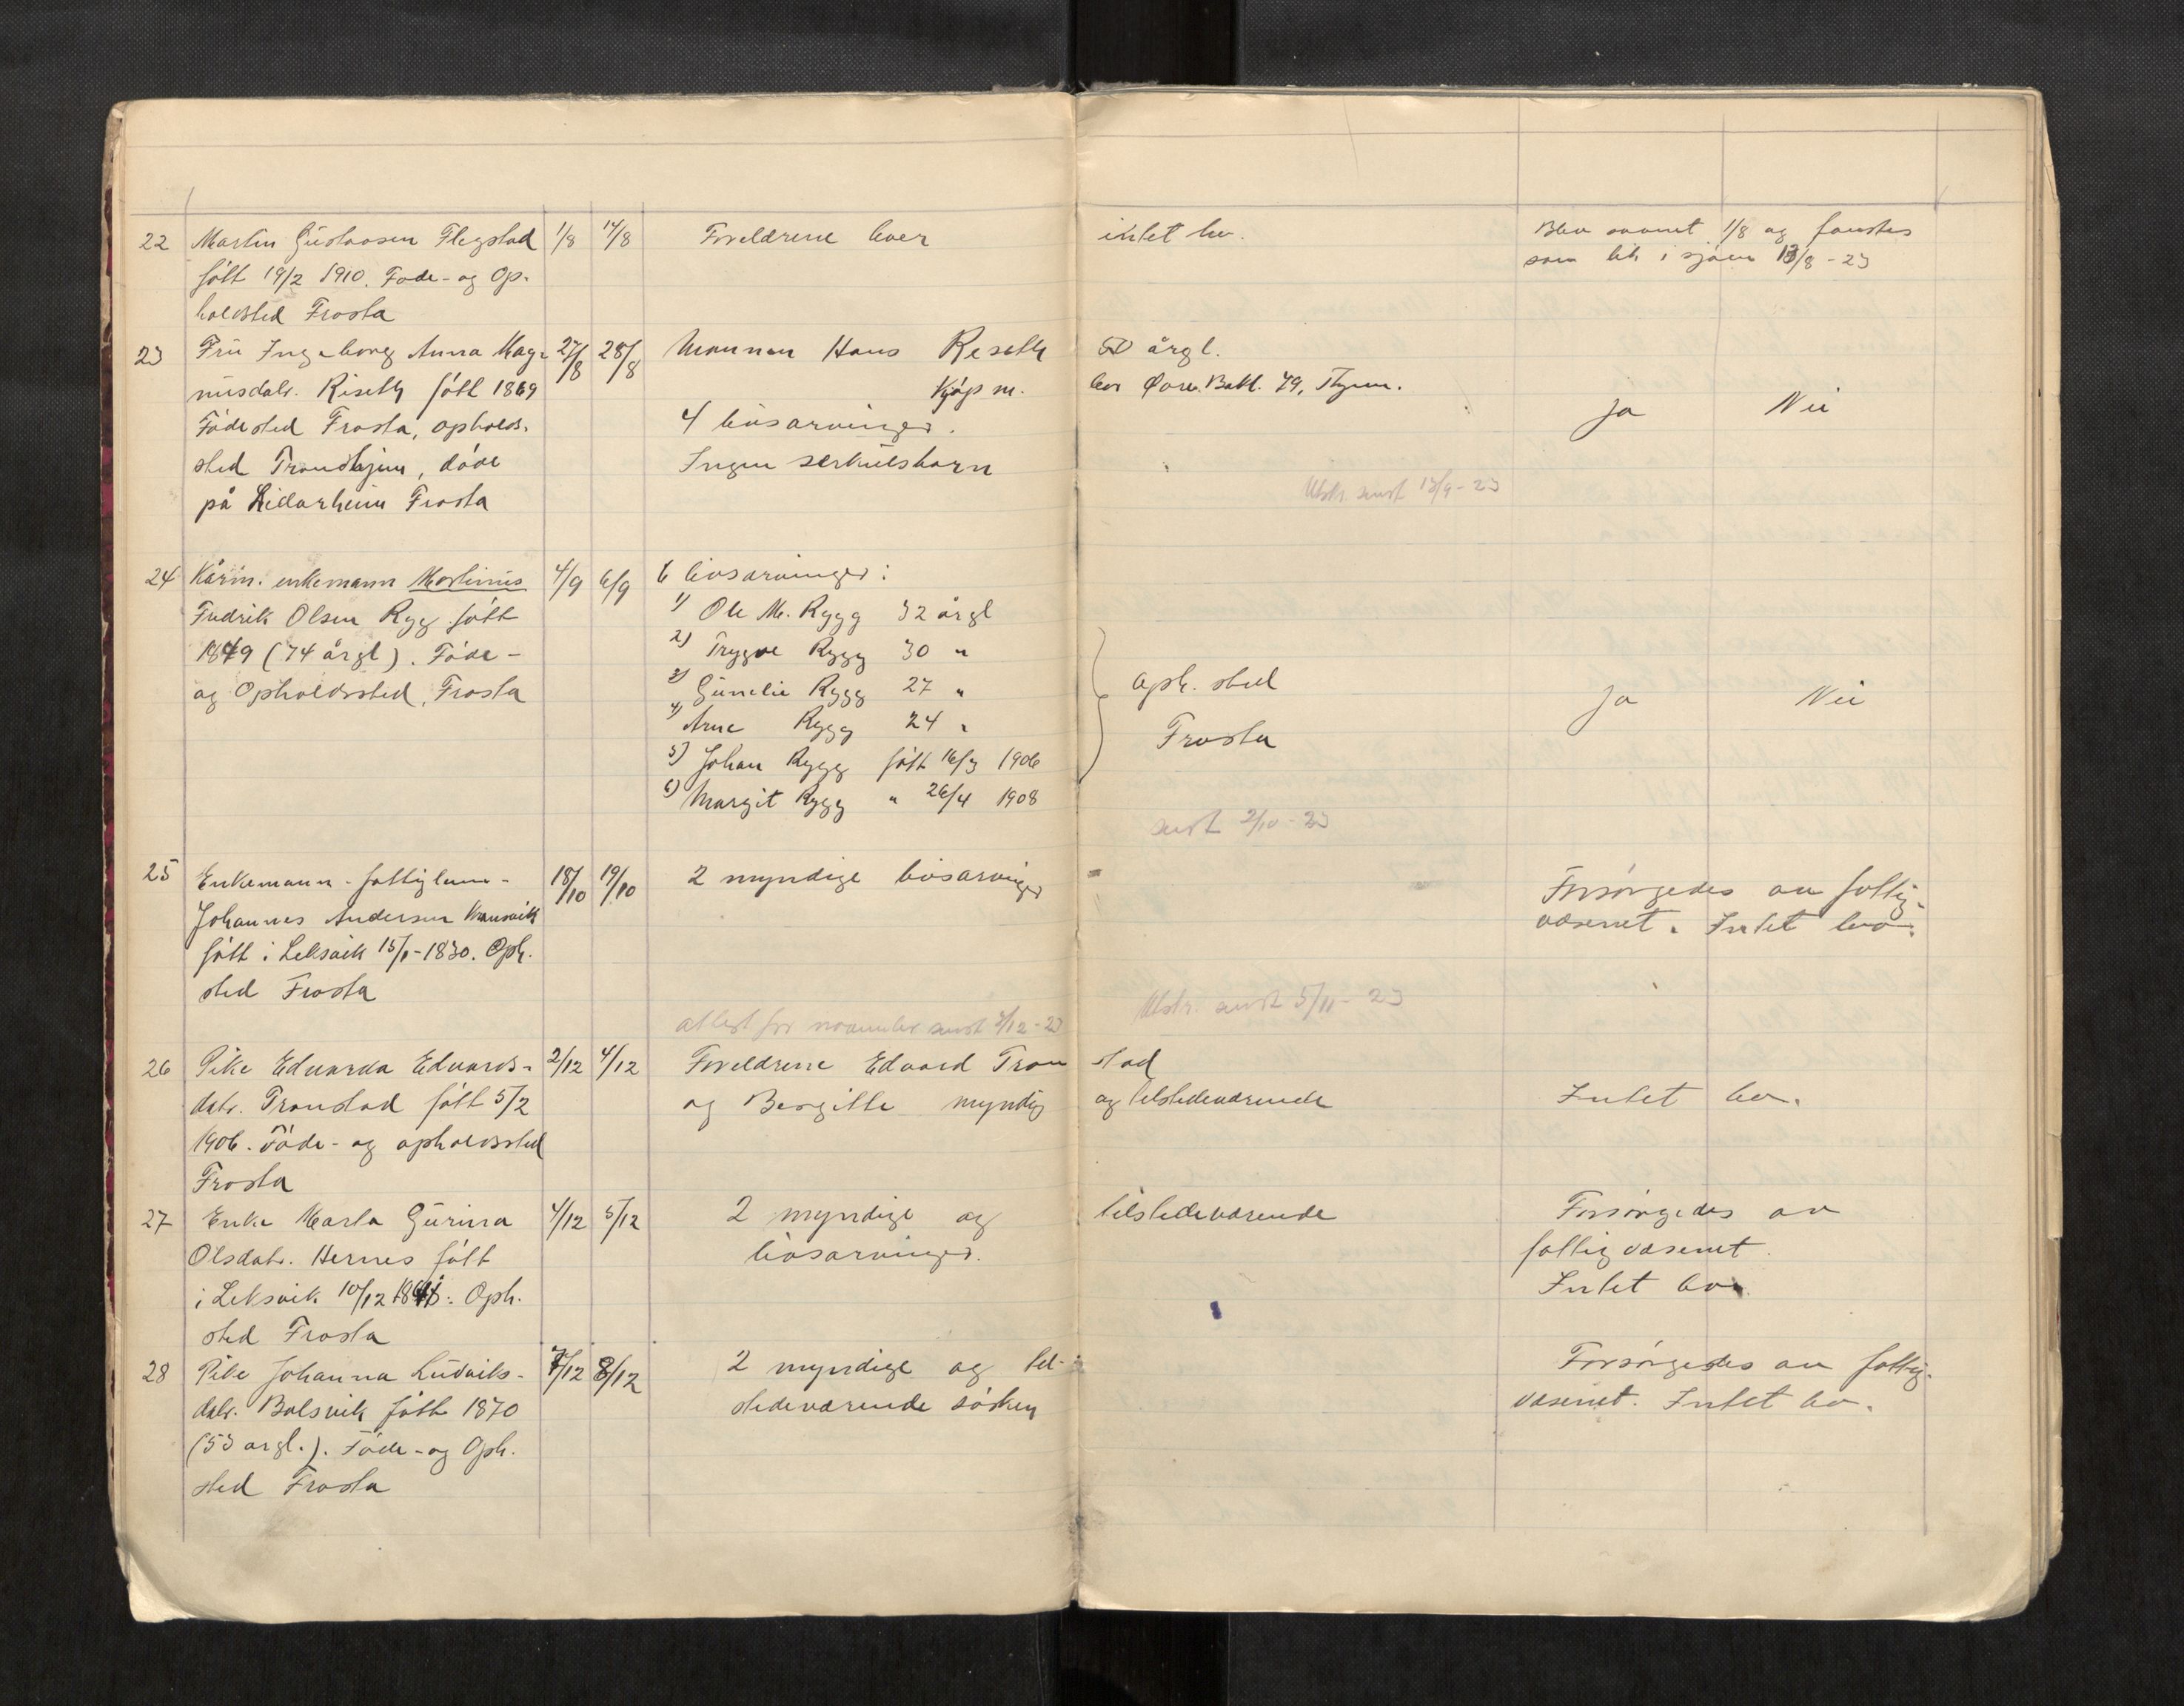 22 Martin Gustavsen Flegstad 1/8 14/8 Foreldrene lever intet bo. Blev savnet 1/8 og fandtes
født 19/2 1910. Føde- og Op- som lik i sjøen 13/8 - 23
holdsted Frosta
23 Fru Ingeborg Anna Mag- 27/8 28/8 Mannen Hans Reseth årgl.
nusdatr. Riseth født 1869 Kjøpm. bor Øvre Bakl. 79, Thjem.
Fødested Frosta, opholds- 4 livsarvinger. Ja Nei
sted Trondhjem, døde Ingen særkulsbarn
på Frosta Utskr. sendt 13/9 - 23
24 Kårm. enkemann Martinus 4/9 6/9 6 livsarvinger:
Fredrik Olsen Rygg født 1) Ole M. Rygg 32 årgl
1849 (74 årgl). Føde- 2) Trygve Rygg 30 "
og Opholdssted, Frosta 3) Gunelie Rygg 27 " Oph. sted Ja Nei
4) Arne Rygg 24 " Frosta
5) Johan Rygg født 16/3 1906
6) Margit Rygg " 26/4 1908
sendt 2/10 - 23
25 Enkemann - fattiglem - 18/10 19/10 2 myndige livsarvinger Forsørgedes av fattig-
Johannes Andersen født i Leksvik 15/1 - 1830. Oph. væsenet. Intet bo.
sted Frosta
Utskr. sendt 5/11 - 23
attest for november sendt 3/12 - 23
26 Pike Edvarda Edvards- 2/12 4/12 Foreldrene Edvard Tronstad
datr. Tronstad født 5/2 og Bergitte myndig og tilstedeværende Intet bo.
1906. Føde- og opholdssted
Frosta
27 Enke Marta Gurina 4/12 5/12 2 myndige og tilstedeværende Forsørgedes av
Olsdatr. Hernes født livsarvinger. fattigvæsenet.
i Leksvik 10/12 Oph. Intet bo.
sted Frosta
28 Pike Johanna Ludviks- 7/12 8/12 2 myndige og til- Forsørgedes av fattig-
datr. Balsvik født 1870 stedeværende søsken væsenet. Intet bo.
(53 årgl.). Føde- og Oph.
sted Frosta